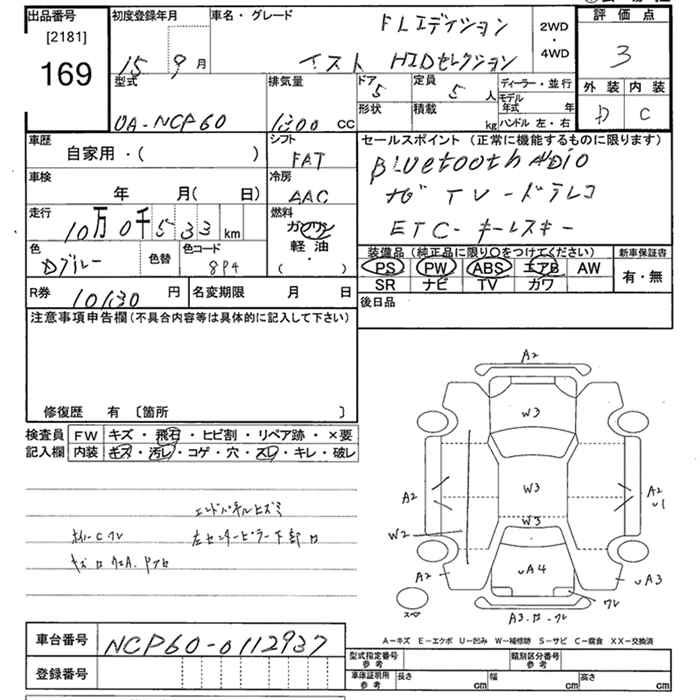 出品番号
[2181]
169
初度登録年月
15 9 月
車名・グレード
FLエディション
イスト HIDセレクション
2WD
・
4WD
評価点
3
外装 内装
D C
型式
UA-NCP60
排気量
1300 CC
ドア
5
定員
5 人
形状
積載
kg
ディーラー・並行
モデル年式 年
ハンドル 左・右
車歴
自家用・( )
シフト
FAT
車検
年 月( 日)
冷房
AAC
走行
10万0千533 km
燃料
ガソリン
軽油
( )
色
Dブルー
色替
色コード
8P4
R券
10,130 円
名変期限 月 日
セールスポイント (正常に機能するものに限ります)
Bluetooth AUDIO
ナビ TV-ドラレコ
ETC-キーレスキー
装備品 (純正品に限り○をつけてください)
PS PW ABS エアB AW
SR ナビ TV カワ
新車保証書
有・無
後日品
注意事項申告欄 (不具合内容等は具体的に記入して下さい)
修復歴 有 〔箇所 〕
検査員
記入欄
FW キズ・飛石・ヒビ割・リペア跡・×要
内装 キズ・汚レ・コゲ・穴・スレ・キレ・破レ
エンドパネルヒズミ
左センターピラー下部
A2
W3
A2
W3
A2
W3
W2
A2
A4
A3
ワレ
スペア
A3
A-キズ E-エクボ U-凹み W-補修跡 S-サビ C-腐食 XX-交換済
車台番号
NCP60-0112937
登録番号
型式指定番号
参考
類別区分番号
参考
車庫証明用
参考
長さ cm
幅 cm
高さ cm